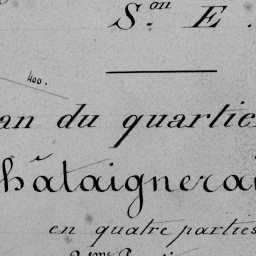 S.on E.
400.
an du quartie
hâtaignerai
en quatre parties
2me Partie